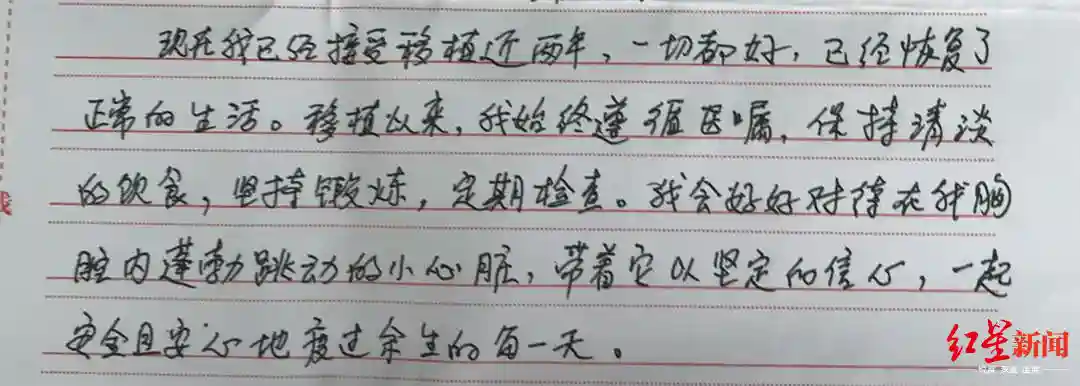 现在我已经接受移植近两年，一切都好，已经恢复了
正常的生活。移植以来，我始终遵循医嘱，保持清淡
的饮食，坚持锻炼，定期检查。我会好好对待在我胸
腔内蓬勃跳动的小心脏，带着它以坚定的信心，一起
安全且安心地度过余生的每一天。
红星新闻